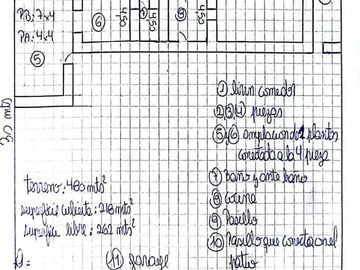 PB: 7x4
PA: 4x4
6
5
1 liven comedor
2 3 4 piezas
5 y 6 ampliacion de 2 plantas
conectada a la 4 pieza
7 baño y ante baño
8 cocina
9 Pasillo
10 Pasillo que conecta con el
patio
11 garage
terreno: 480 mts²
superficie cubierta: 218 mts²
superficie libre: 262 mts²